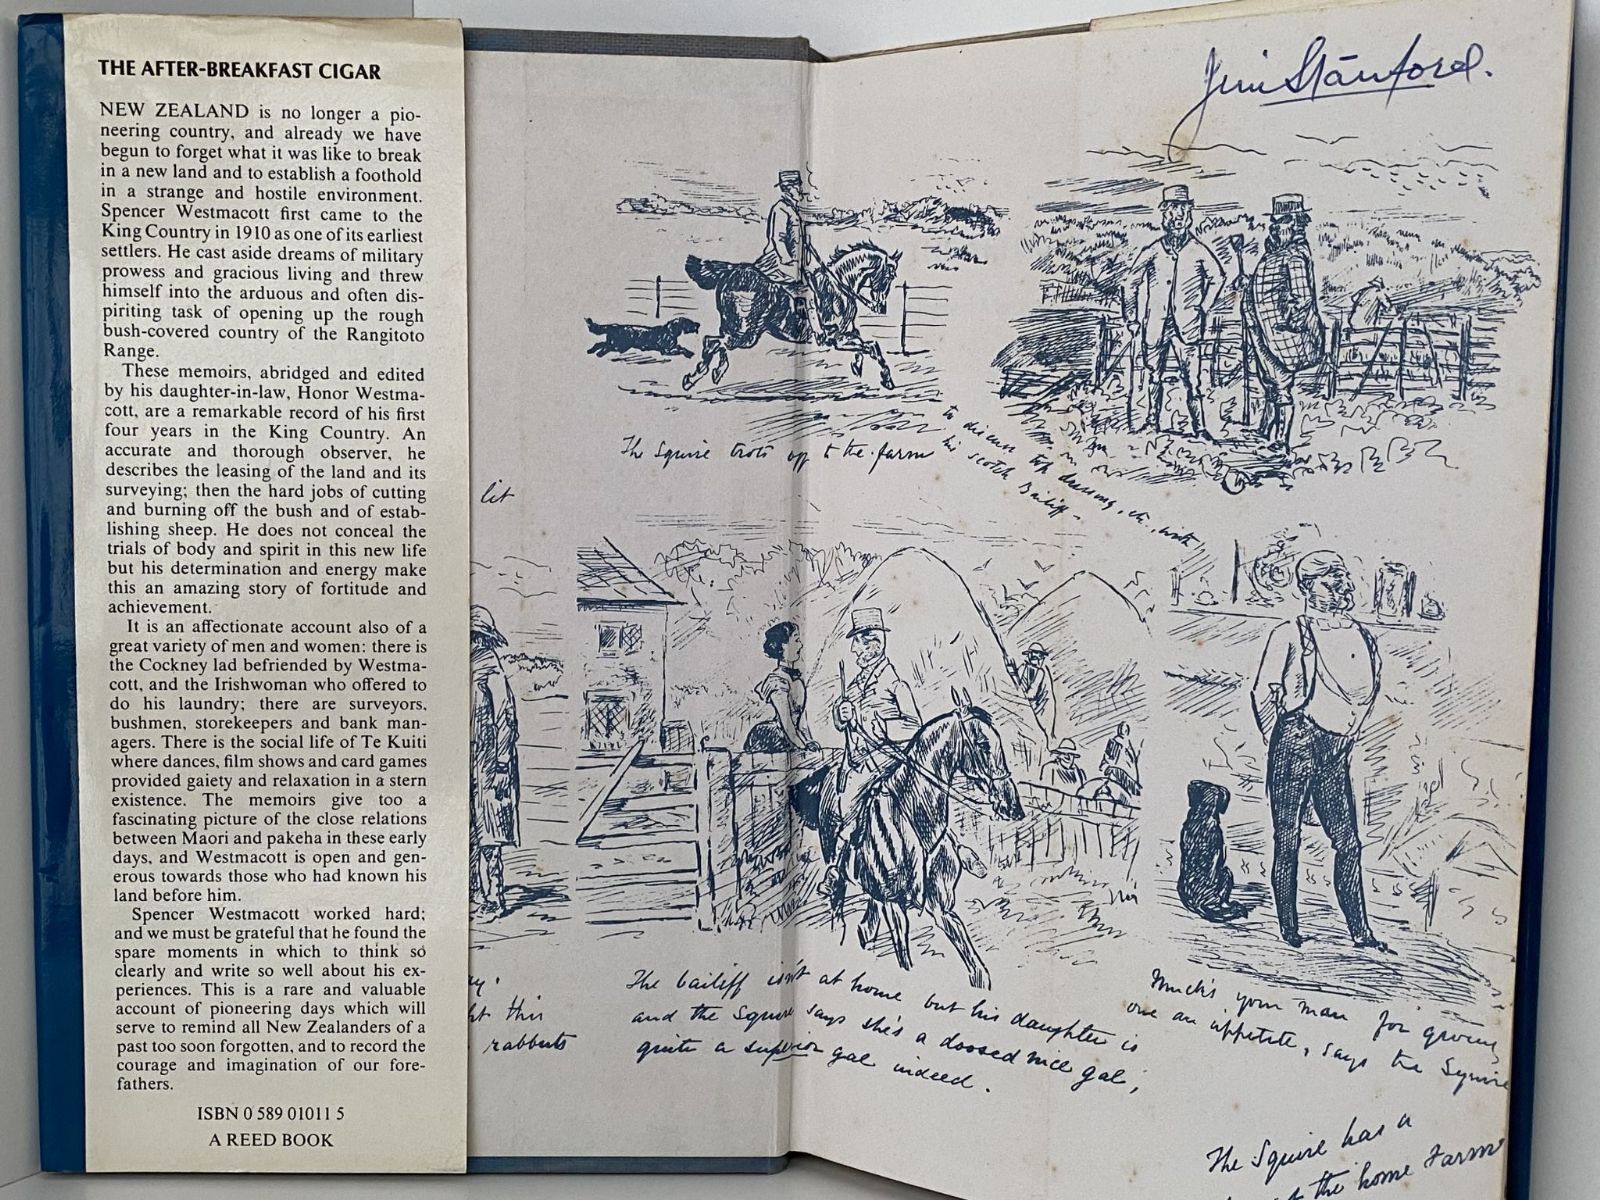 THE AFTER-BREAKFAST CIGAR
NEW ZEALAND is no longer a pio-
neering country, and already we have
begun to forget what it was like to break
in a new land and to establish a foothold
in a strange and hostile environment.
Spencer Westmacott first came to the
King Country in 1910 as one of its earliest
settlers. He cast aside dreams of military
prowess and gracious living and threw
himself into the arduous and often dis-
piriting task of opening up the rough
bush-covered country of the Rangitoto
Range.
These memoirs, abridged and edited
by his daughter-in-law, Honor Westma-
cott, are a remarkable record of his first
four years in the King Country. An
accurate and thorough observer, he
describes the leasing of the land and its
surveying; then the hard jobs of cutting
and burning off the bush and of estab-
lishing sheep. He does not conceal the
trials of body and spirit in this new life
but his determination and energy make
this an amazing story of fortitude and
achievement.
It is an affectionate account also of a
great variety of men and women: there is
the Cockney lad befriended by Westma-
cott, and the Irishwoman who offered to
do his laundry; there are surveyors,
bushmen, storekeepers and bank man-
agers. There is the social life of Te Kuiti
where dances, film shows and card games
provided gaiety and relaxation in a stern
existence. The memoirs give too a
fascinating picture of the close relations
between Maori and pakeha in these early
days, and Westmacott is open and gen-
erous towards those who had known his
land before him.
Spencer Westmacott worked hard;
and we must be grateful that he found the
spare moments in which to think so
clearly and write so well about his ex-
periences. This is a rare and valuable
account of pioneering days which will
serve to remind all New Zealanders of a
past too soon forgotten, and to record the
courage and imagination of our fore-
fathers.
ISBN 0 589 01011 5
A REED BOOK
Jim Stanford.
The Squire trots off to the farm
to discuss top dressing, etc., with
his scotch Bailiff.
lit
this
rabbits
The bailiff isn't at home but his daughter is
and the Squire says she's a doosed nice gal,
quite a superior gal indeed.
Muck's your man for growing
one an appetite, says the Squire
The Squire has a
the home Farm